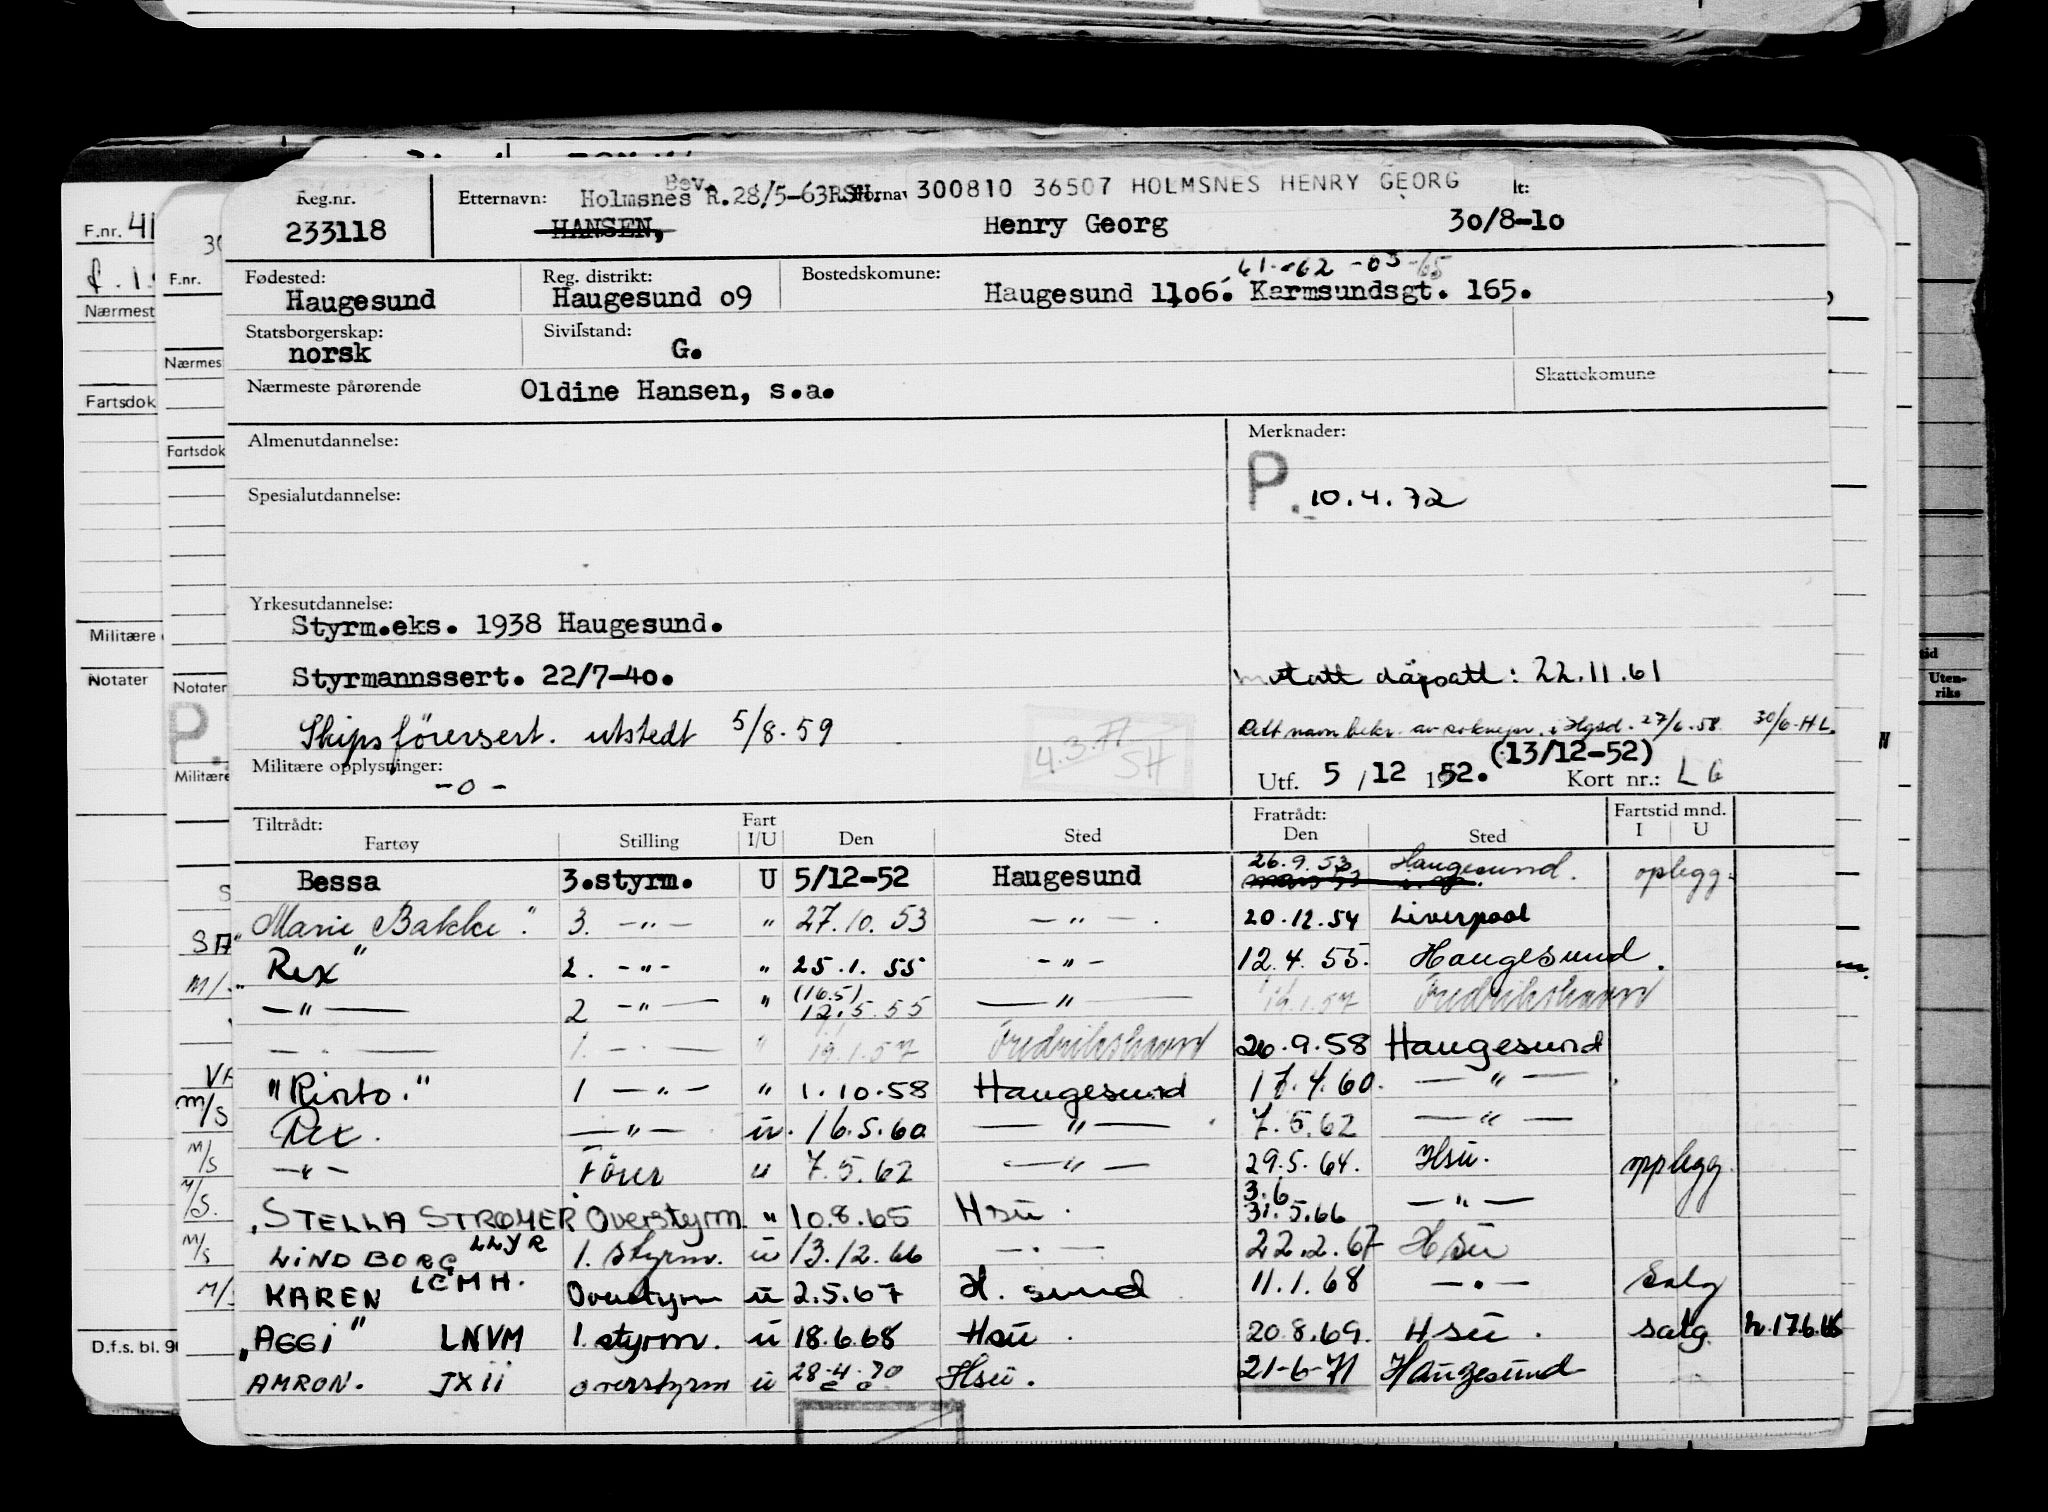 Reg.nr. Etternavn: Holmsnes Bev. R.28/5-63RSH. Fornav 300810 36507 HOLMSNES HENRY GEORG lt:
233118 HANSEN, Henry Georg 30/8-10
Fødested: Reg. distrikt: Bostedskomune: 61.-62 -63-65
Haugesund Haugesund 09 Haugesund 1106. Karmsundsgt. 165.
Statsborgerskap: Sivilstand:
norsk G.
Nærmeste pårørende Oldine Hansen, s.a. Skattekomune
Almenutdannelse: Merknader:
P. 10.4.72
Spesialutdannelse:
Yrkesutdannelse:
Styrm.eks. 1938 Haugesund.
Styrmannssert. 22/7-40. dåpsatt: 22.11.61
Skipsförersert. utstedt 5/8.59 4.3.71 SH
27/6.58 30/6-HL.
Militære opplysninger: -o-
Utf. 5/12 1952. (13/12-52) Kort nr.:
Tiltrådt: Fart Fratrådt: Fartstid mnd.
Fartøy Stilling I/U Den Sted Den Sted I U
Bessa 3.styrm. U 5/12-52 Haugesund 26.9.53 Haugesund. oplegg.
Marie Bakke". 3. -"- " 27.10.53 -"-. 20.12.54 Liverpool
Rex" 2. -"- " 25.1.55 -"- 12.4.55. Haugesund.
-"- 2 -"- " (16.5) 12.5.55 -"- 1.57 Fredrikshavn
-"- 1. -"- " 19.1.57 Fredrikshavn 26.9.58 Haugesund
"Rinto." 1 -"- " 1.10.58 Haugesund 17.4.60. -"-
Rex. -"- u. 16.5.60 -"- 7.5.62 -"-
-"- Förer u 7.5.62 -"- 29.5.64. Hsu. opplegg.
"STELLA STROMER Overstyrm. " 10.8.65 Hsu. 3.6 31.5.66 -"-
LINDBORG LLYR 1. styrm. u 13.12.66 -"- 22.2.67 Hsu
KAREN LEMH. Overstyrm u 2.5.67 H.sund 11.1.68 -"- Salg
"AGGI" LNVM 1.styrm. u 18.6.68 Hsu. 20.8.69. Hsu. salg.
AMRON. JXII overstyrm u 28-4-70 Hsu. 21-6-71 Haugesund
F.nr. 41
Nærmest
Fartsdok
Militære
Notater
D.f.s. bl. 9
F.nr.
Nærmes
Fartsdok
Notater
P.
Militære
M/S
M/S
M/S
M/S
tid
Uten-
riks